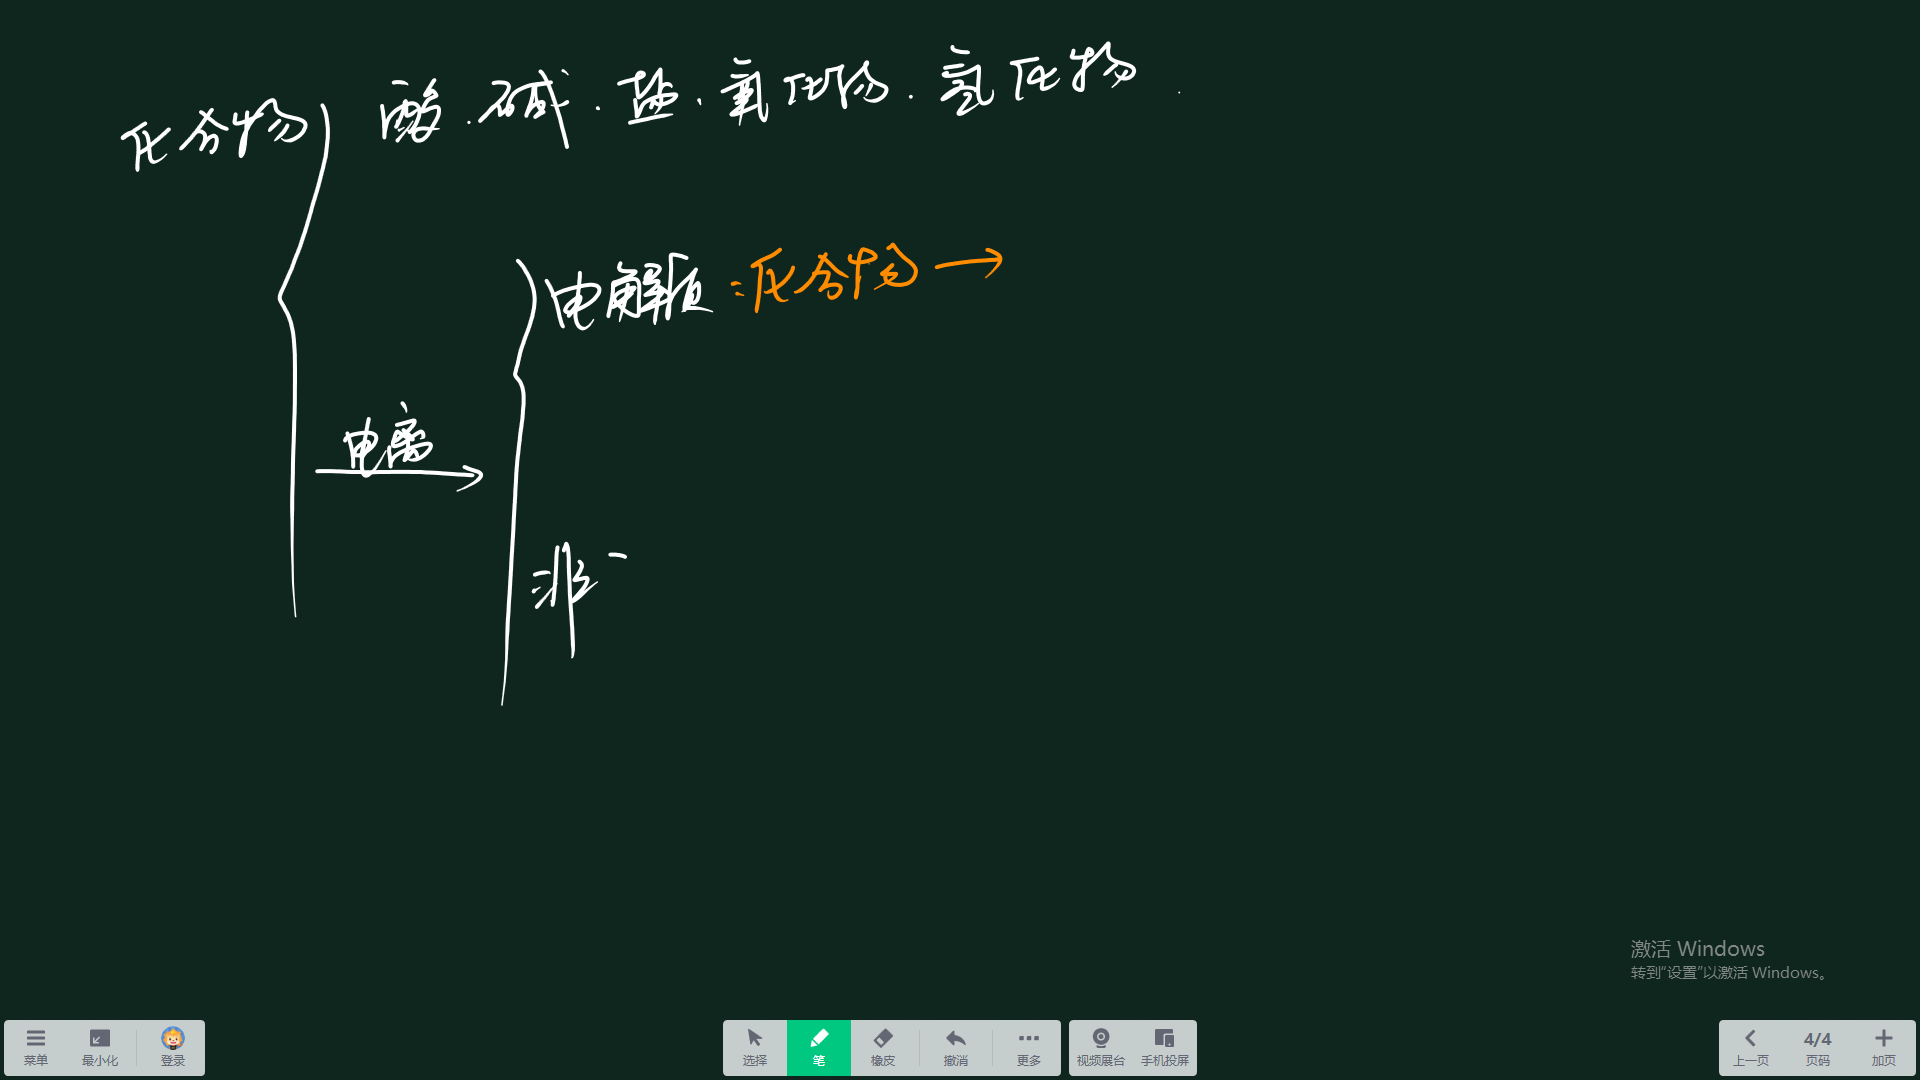 酸．碱．盐．氧化物．氢化物．
化合物
电解质：化合物→
电离
非一
激活 Windows
转到"设置"以激活 Windows。
菜单 最小化 登录 选择 笔 橡皮 撤消 更多 视频展台 手机投屏 上一页 4/4 页码 加页